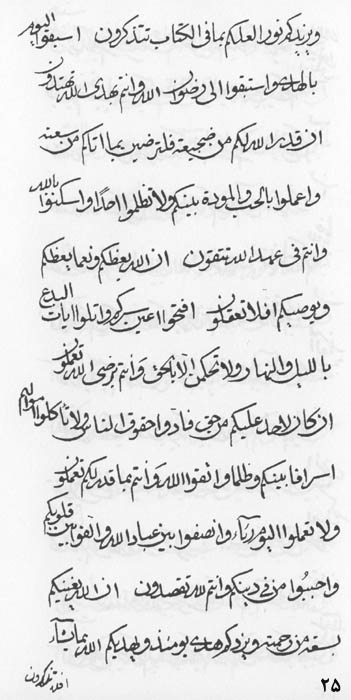 ويزيدكم نورا لعلكم بما في الكتاب تتذكرون استبقوا اليوم
بالهدى واستبقوا الى رضوان الله وانتم بهدى الله تهتدون
ان قدر الله لكم من ضجيعة فلترضين بما اتاكم من سعته
واعملوا بالحب والمودة بينكم ولا تظلموا احدا واسكنوا بالله
وانتم في عهد الله تتقون ان الله يعظكم ونعما يعظكم
ويوصيكم افلا تعقلون افتحوا اعين سركم واتلوا ايات البدع
بالليل والنهار ولا تحكمن الا بالحق وانتم برضى الله تعملون
ان كان لاحد عليكم من حق فادوا حقوق الناس ولا تاكلوا اموالهم
اسرافا بينكم وظلما واتقوا الله وانتم بما قدر لكم تعملون
ولا تعملوا اليوم رئاء وانصفوا بين عباد الله واتقوا من قلوبكم
واحببوا من في دينكم وانتم لله تقصدون ان الله يغنيكم
بسعة من رحمته ويزدكم هدى يومئذ ويهديكم الله بما يشاء
افلا تذكرون
٢٥